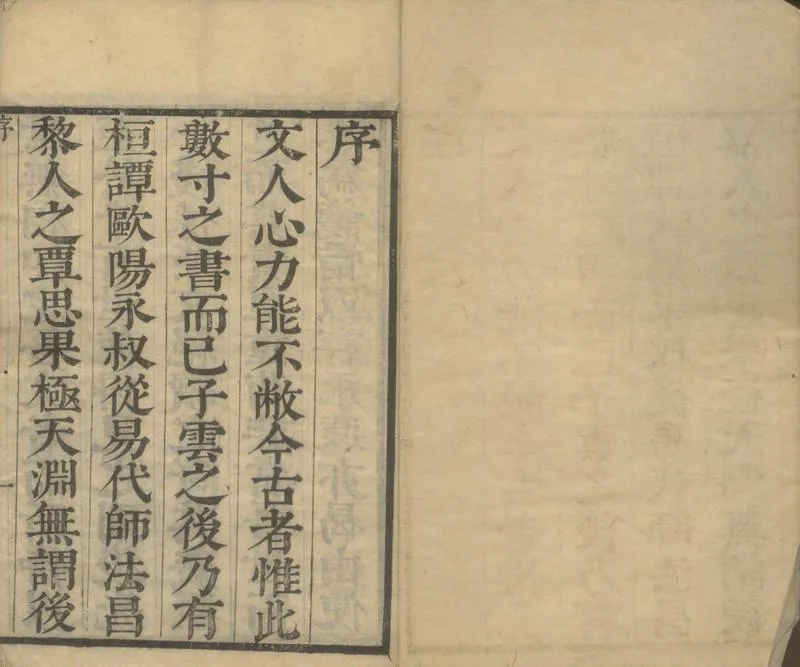 序
文人心力能不敝今古者惟此
數寸之書而已子雲之後乃有
桓譚歐陽永叔從易代師法昌
黎人之覃思果極天淵無謂後
序
一